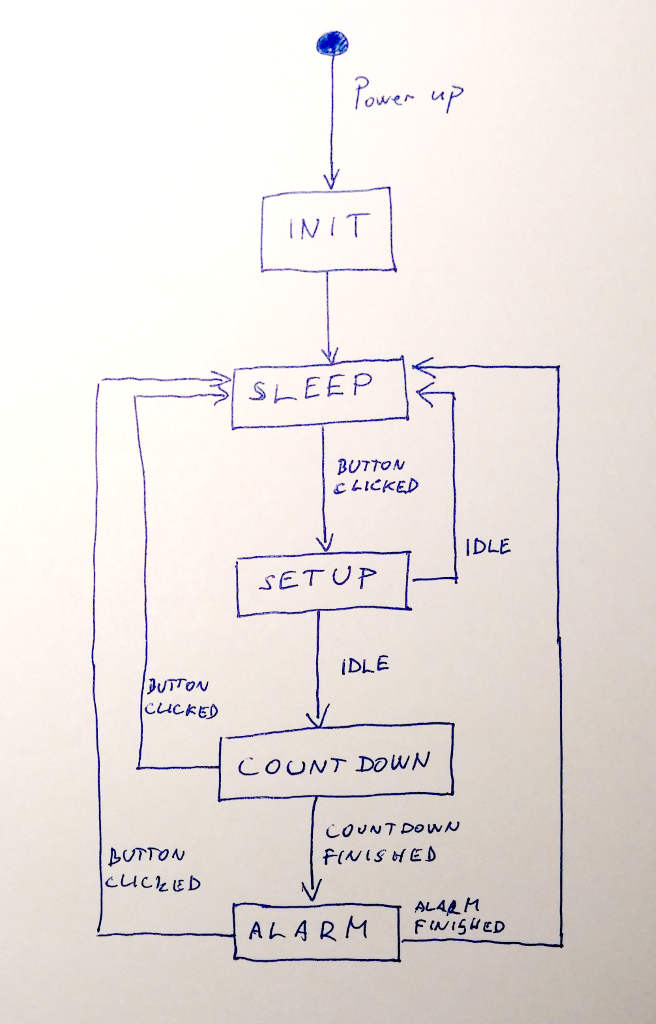 Power up
INIT
SLEEP
BUTTON
CLICKED
IDLE
SETUP
IDLE
BUTTON
CLICKED
COUNTDOWN
COUNTDOWN
FINISHED
BUTTON
CLICKED
ALARM
ALARM
FINISHED